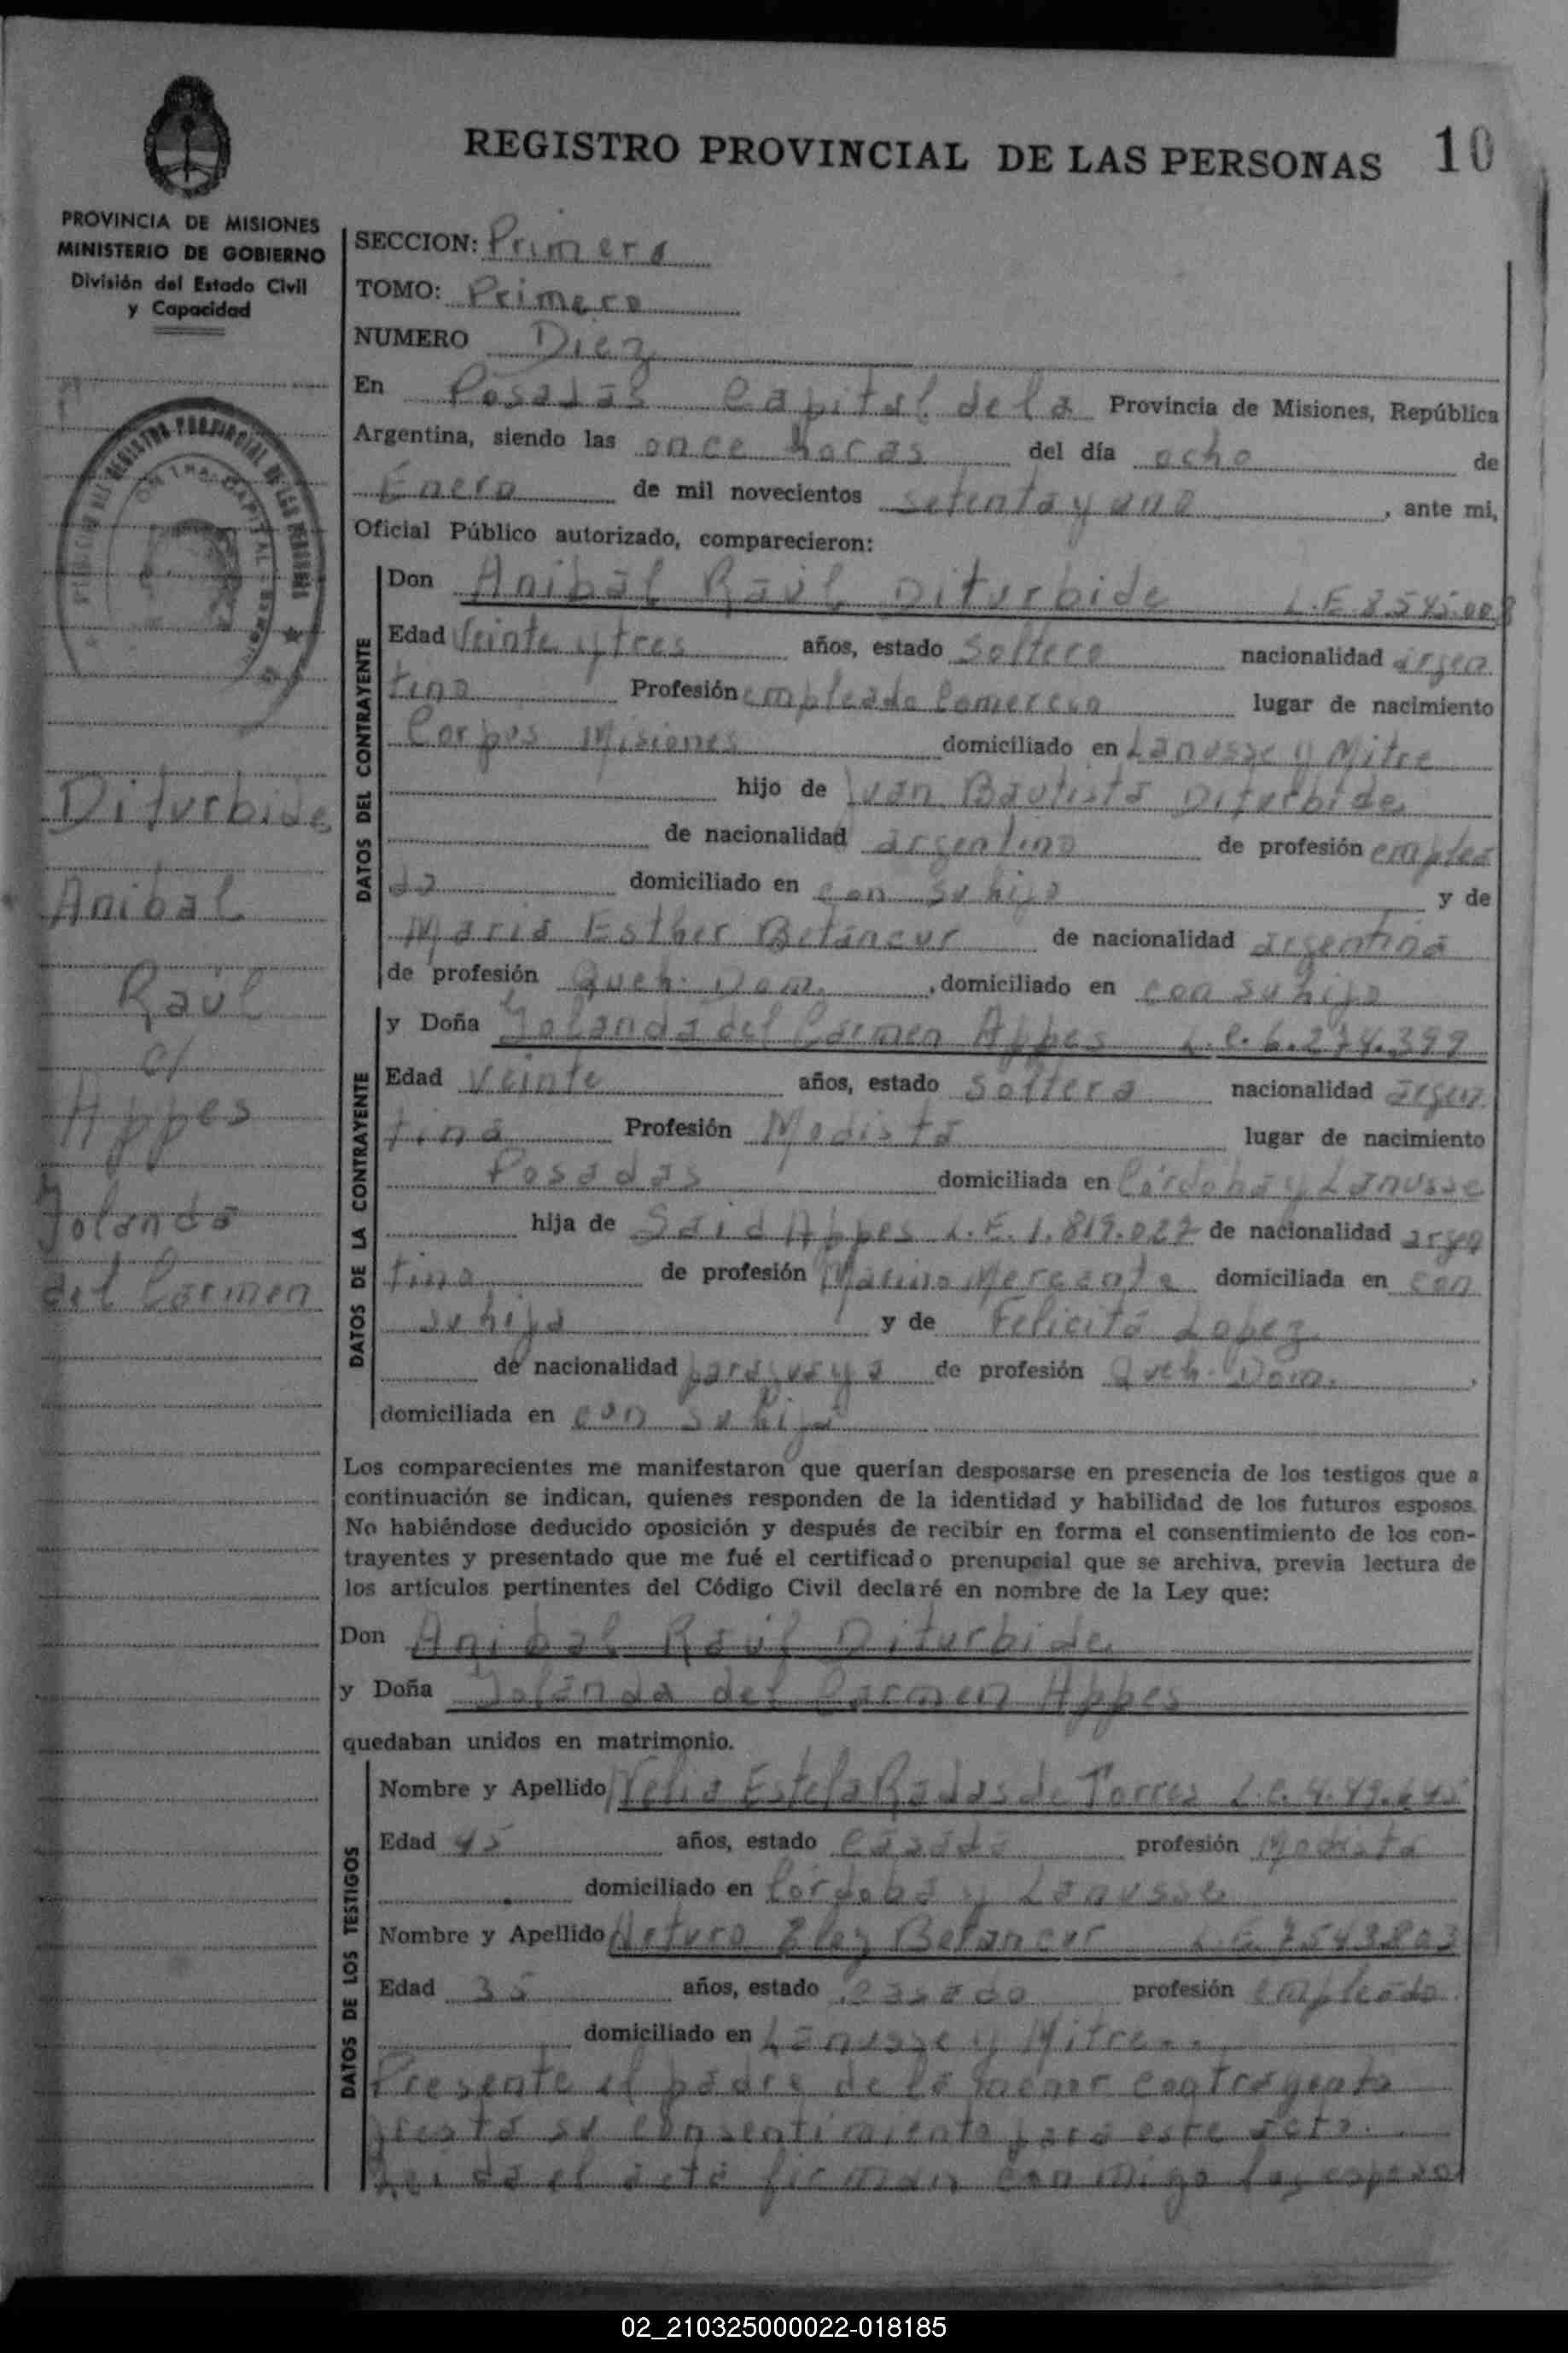 REGISTRO PROVINCIAL DE LAS PERSONAS 10
PROVINCIA DE MISIONES
MINISTERIO DE GOBIERNO
División del Estado Civil
y Capacidad
Diturbide
Anibal
Raúl
c/
Appes
Jolanda
del Carmen
SECCION: Primera
TOMO: Primero
NUMERO Diez
En Posadas Capital de la Provincia de Misiones, República
Argentina, siendo las once horas del día ocho de
Enero de mil novecientos setenta y uno, ante mi,
Oficial Público autorizado, comparecieron:
DATOS DEL CONTRAYENTE
Don Anibal Raúl Diturbide L.E.
Edad Veinte y tres años, estado Soltero nacionalidad argen
tina Profesión empleado Comercio lugar de nacimiento
Corpus Misiones domiciliado en Lanusse y Mitre
hijo de Juan Bautista Diturbide
de nacionalidad argentino de profesión emplea
do domiciliado en con su hijo y de
Maria Esther Betancur de nacionalidad argentina
de profesión Queh. Dom., domiciliado en con su hijo
DATOS DE LA CONTRAYENTE
y Doña Jolanda del Carmen Appes L.C. 6.274.399
Edad Veinte años, estado Soltera nacionalidad argen
tina Profesión Modista lugar de nacimiento
Posadas domiciliada en Córdoba y Lanusse
hija de Said Appes L.E. 1.819.027 de nacionalidad argen
tina de profesión Marino Mercante domiciliada en con
su hija y de Felicita Lopez
de nacionalidad paraguaya de profesión Queh. Dom.,
domiciliada en con su hija
Los comparecientes me manifestaron que querían desposarse en presencia de los testigos que a
continuación se indican, quienes responden de la identidad y habilidad de los futuros esposos.
No habiéndose deducido oposición y después de recibir en forma el consentimiento de los con-
trayentes y presentado que me fué el certificado prenupcial que se archiva, previa lectura de
los artículos pertinentes del Código Civil declaré en nombre de la Ley que:
Don Anibal Raúl Diturbide
y Doña Jolanda del Carmen Appes
quedaban unidos en matrimonio.
DATOS DE LOS TESTIGOS
Nombre y Apellido Estela de Torres L.C.
Edad 45 años, estado Casada profesión Modista
domiciliado en Córdoba y Lanusse
Nombre y Apellido Arturo Betancur L.E. 7543803
Edad 35 años, estado casado profesión empleado
domiciliado en Lanusse y Mitre
Presente el padre de la menor contrayente
presta su consentimiento para este acto.
el acta firman conmigo los esposos
02_210325000022-018185